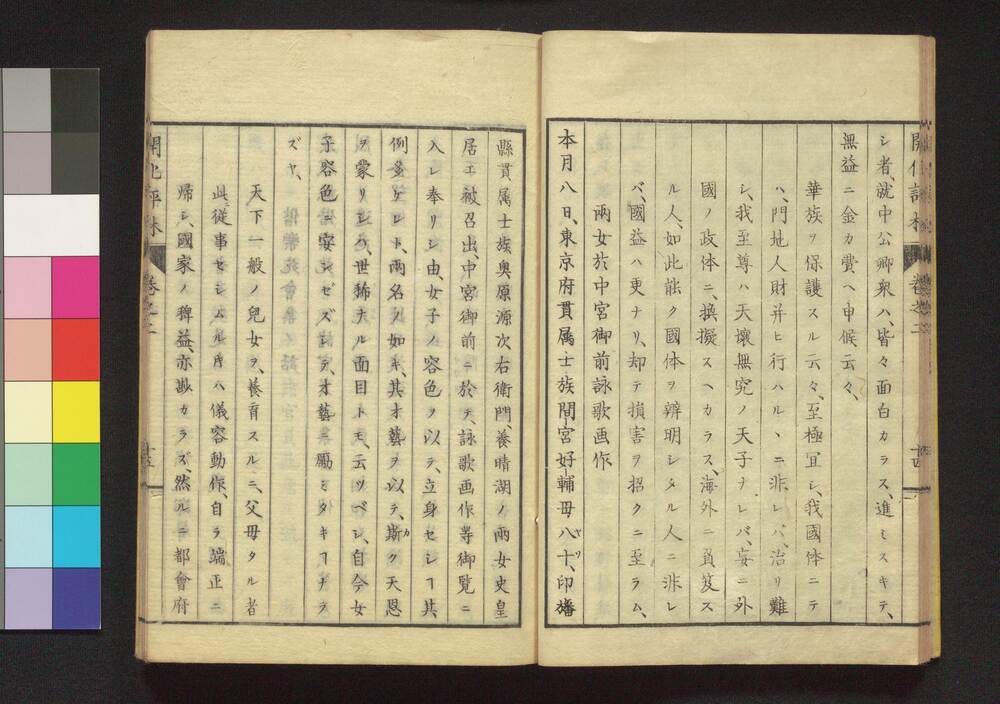 開化評林 卷之二 十四
シ者、就中公卿衆ハ、皆々面白カラス、進ミスキテ、
無益ニ金カ費ヘ申候云々、
華族ヲ保護スル云々、至極冝シ、我國体ニテ
ハ、門地人財并ヒ行ハルヽニ非レバ、治リ難
シ、我至尊ハ天壞無究ノ天子ナレバ、妄ニ外
國ノ政体ニ、摸擬スヘカラス、海外ニ負笈ス
ル人、如此能ク國体ヲ辨明シタル人ニ非レ
バ、國益ハ更ナリ、却テ損害ヲ招クニ至ラム、
兩女於中宮御前詠歌画作
本月八日、東京府貫属士族間宮好輔母八十、印旛
縣貫属士族奥原源次右衛門、養晴湖ノ兩女史皇
居エ被召出、中宮御前ニ於テ、詠歌画作等御覧ニ
入レ奉リシ由、女子ノ容色ヲ以テ、立身セシヿ其
例多ケレト、兩名ノ如キ、其才藝ヲ以テ、斯ク天恩
ヲ蒙リシハ、世稀ナル面目トモ、云ツベシ、自今女
子容色ニ安ンゼズシテ、才藝ニ勵ミタキヿナラ
ズヤ、
天下一般ノ兒女ヲ、養育スルニ、父母タル者
此ニ從事セシムル𪜈ハ儀容動作、自ラ端正ニ
帰シ、國家ノ稗益、亦尠カラズ、然ルニ都會府
開化評林 卷之二 十五